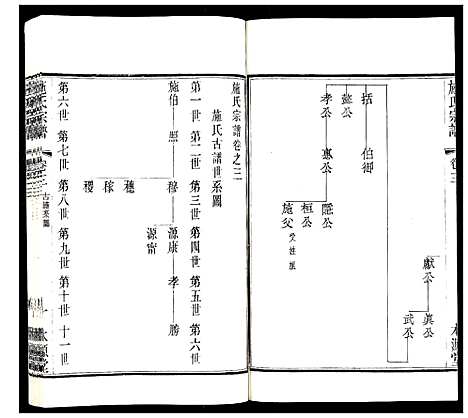 施氏宗譜 卷三
獻公 眞公
武公
括 伯御
懿公
孝公 惠公 隱公
桓公
施父 受姓祖
施氏宗譜卷之三
施氏古譜世系圖
第一世 第二世 第三世 第四世 第五世 第六
施伯 照 穆 源康 孝 勝
源甯
穗
稼
稷
第六世 第七世 第八世 第九世 第十世 十一世
施氏宗譜 卷三 古譜系圖